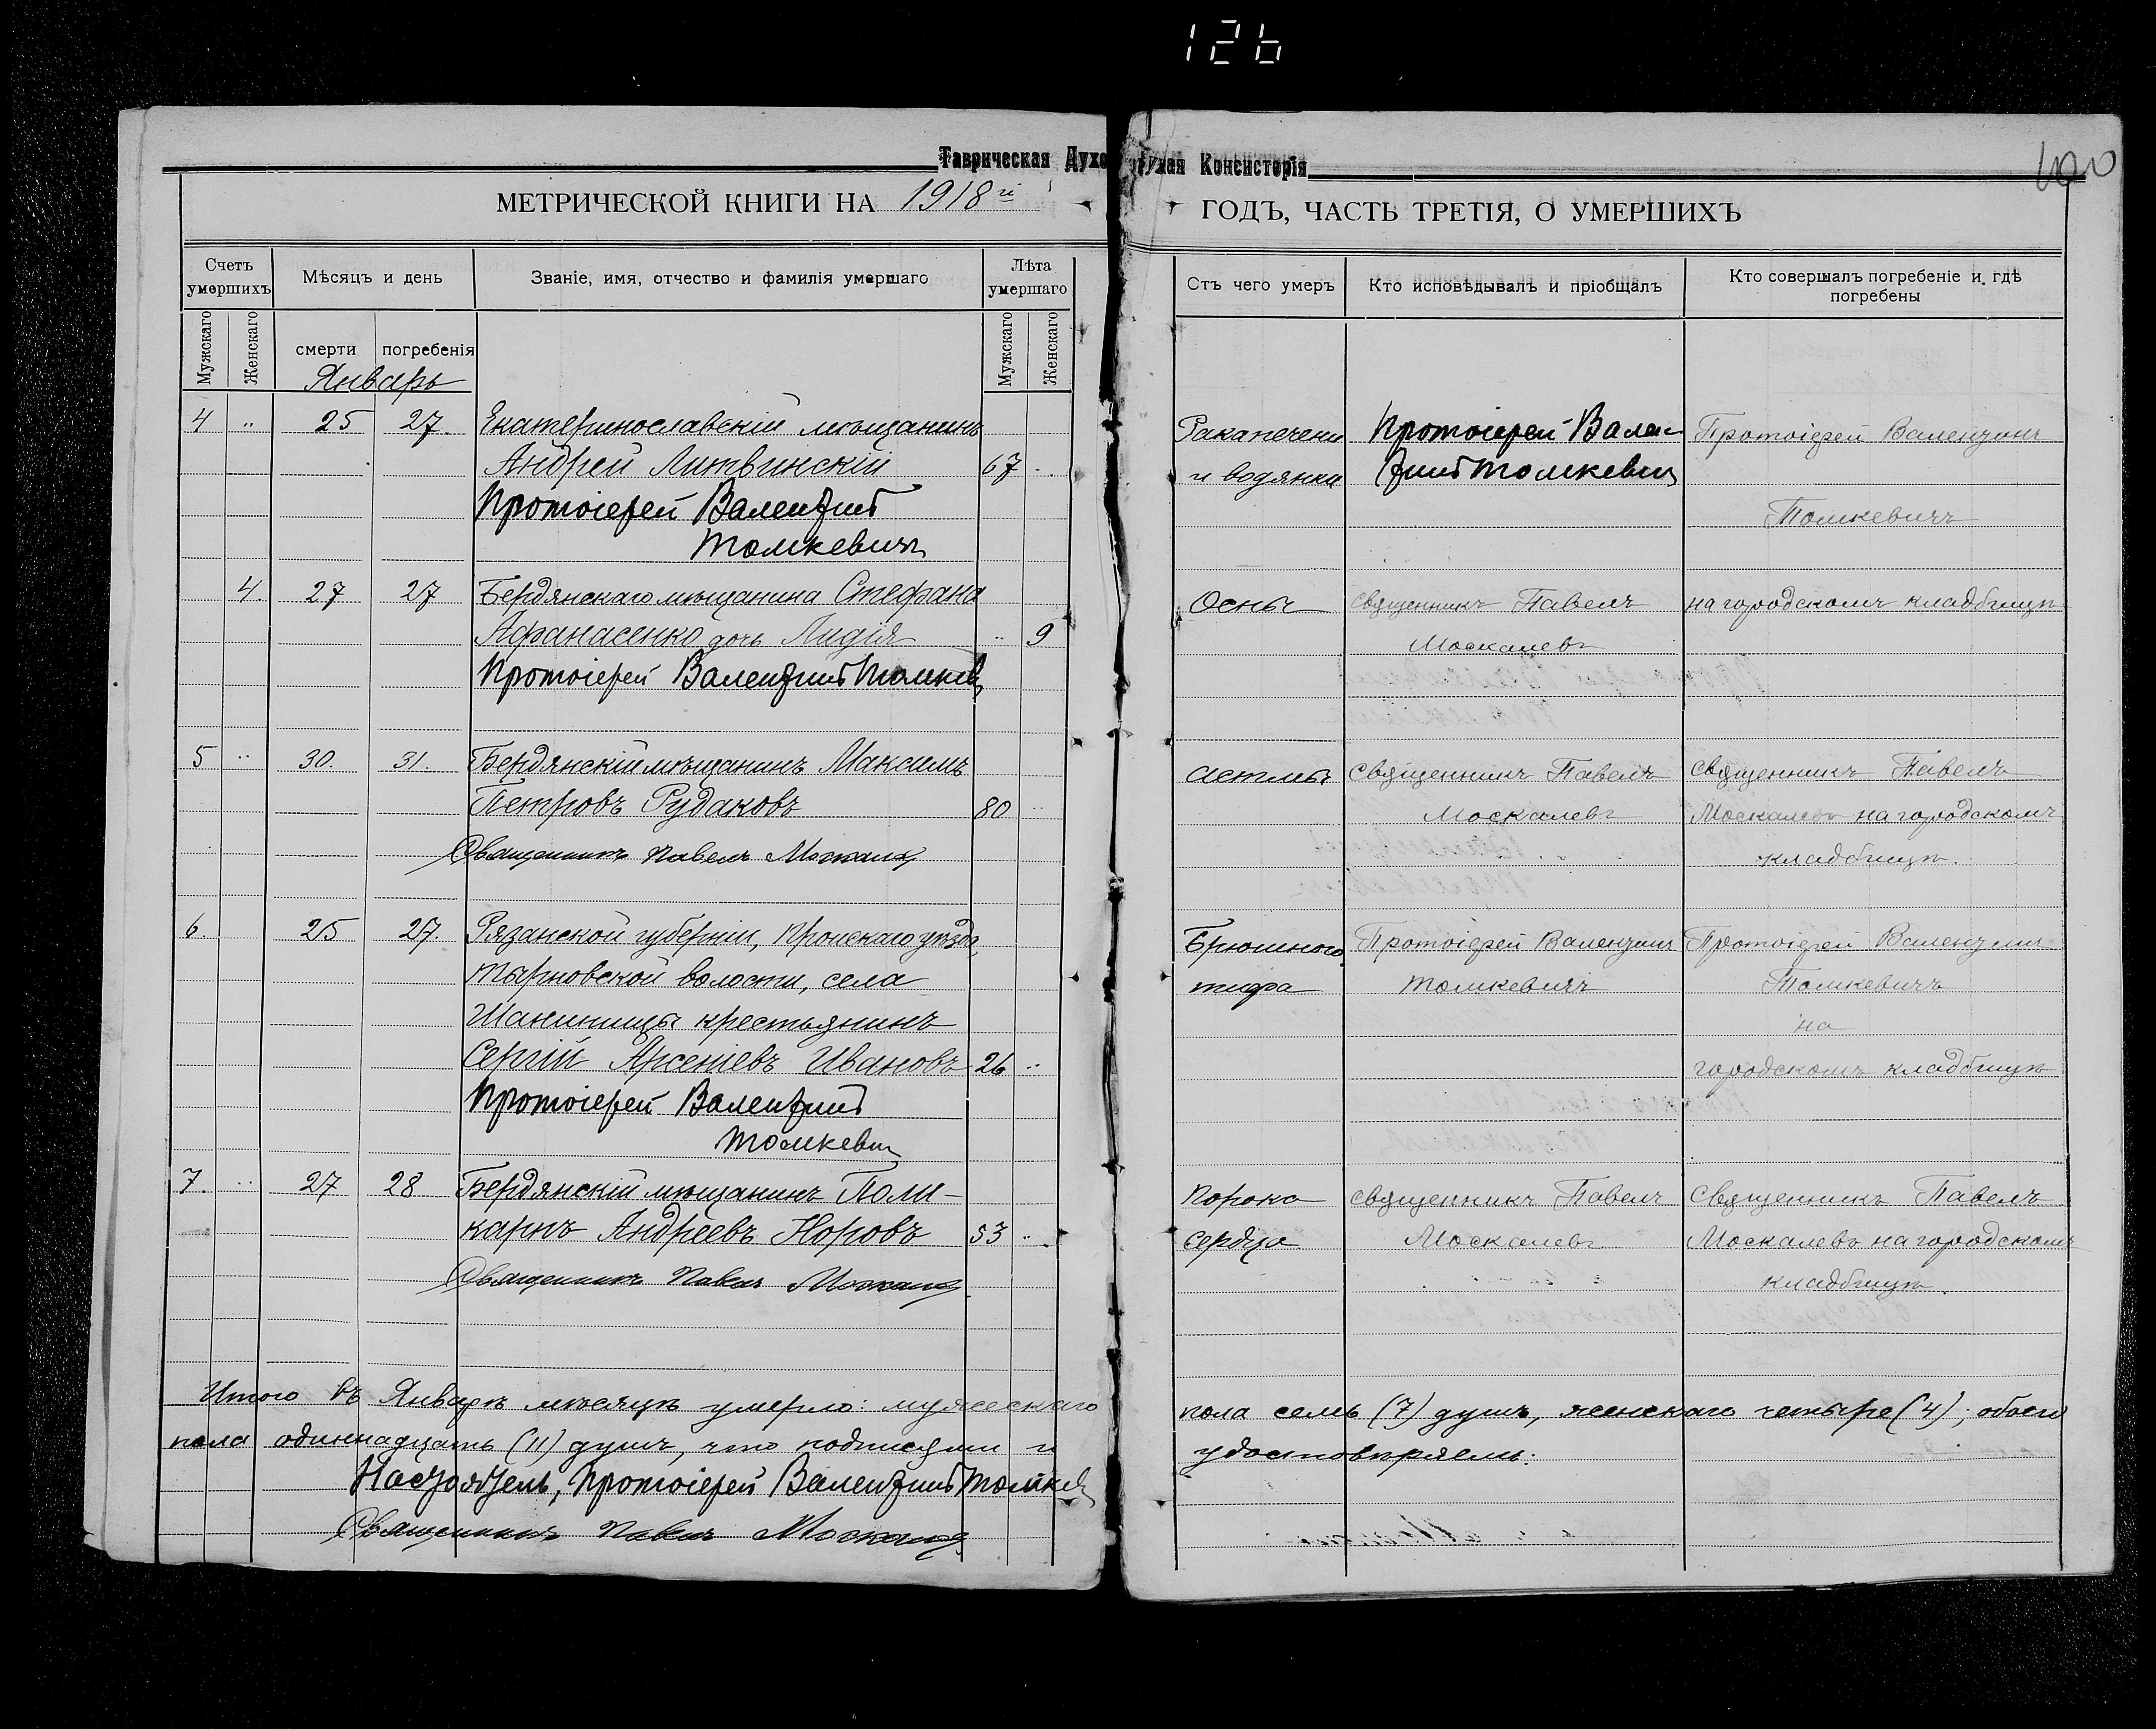 126
Таврическая Духовная Консисторія
400
МЕТРИЧЕСКОЙ КНИГИ НА 1918й ГОДЪ, ЧАСТЬ ТРЕТІЯ, О УМЕРШИХЪ
Счетъ умершихъ
Мѣсяцъ и день
Званіе, имя, отчество и фамилія умершаго
Лѣта умершаго
Отъ чего умеръ
Кто исповѣдывалъ и пріобщалъ
Кто совершалъ погребеніе и гдѣ погребены
Мужскаго
Женскаго
смерти
погребенія
Мужскаго
Женскаго
Январь
4 " 25 27. Екатеринославскій мѣщанинъ
Андрей Литвинскій 67
Протоіерей Валентинъ
Томкевичъ
Рака печени
и водянки
Протоіерей Вален-
тинъ Томкевич
Протоіерей Валентинъ
Томкевичъ
4. 27 27 Бердянскаго мѣщанина Стефана
Афанасенко дочь Лидія " 9
Протоіерей Валентинъ Томкев
Оспы
Священникъ Павелъ
Москалевъ
на городскомъ кладбищѣ
5 " 30. 31. Бердянскій мѣщанинъ Максимъ
Петровъ Рудаковъ 80 "
Священникъ Павелъ Москалев
астмы
Священникъ Павелъ
Москалевъ
Священникъ Павелъ
Москалевъ на городскомъ
кладбищѣ.
6. 25 27. Рязанской губерніи, Пронскаго уѣзда,
Тырновской волости, села
крестьянинъ
Сергій Арсеніевъ Ивановъ 26 "
Протоіерей Валентинъ
Томкевич
Брюшного
тифа
Протоіерей Валентинъ
Томкевичъ
Протоіерей Валентинъ
Томкевичъ
на
городскомъ кладбищѣ
7. " 27 28 Бердянскій мѣщанинъ Поли-
карпъ Андреевъ Норовъ 53 "
Священникъ Павелъ Москалев
Порока
сердца
Священникъ Павелъ
Москалевъ
Священникъ Павелъ
Москалевъ на городскомъ
кладбищѣ.
Итого въ Январѣ мѣсяцѣ умерло: мужескаго пола семь (7) душъ, женскаго четыре (4); обоего
пола одиннадцать (11) душъ, что подписями и удостовѣряемъ:
Настоятель, Протоіерей Валентинъ Томкев
Священникъ Павелъ Москалев